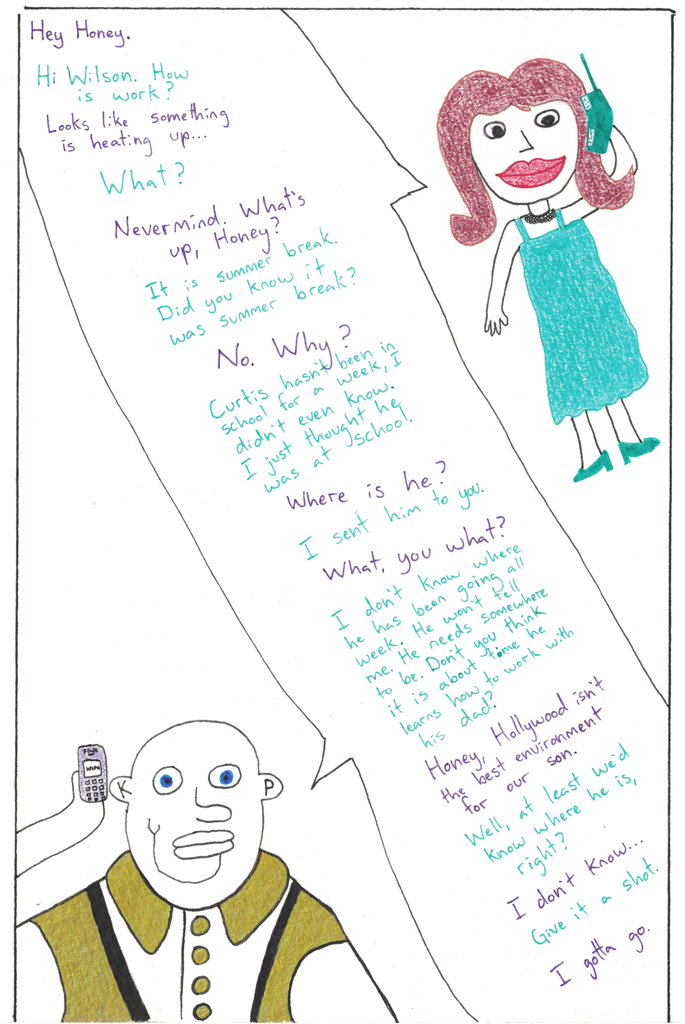 Hey Honey.
Hi Wilson. How
is work?
Looks like something
is heating up...
What?
Nevermind. What's
up, Honey?
It is summer break.
Did you know it
was summer break?
No. Why?
Curtis hasn't been in
school for a week, I
didn't even know.
I just thought he
was at school.
Where is he?
I sent him to you.
What, you what?
I don't know where
he has been going all
week. He won't tell
me. He needs somewhere
to be. Don't you think
it is about time he
learns how to work with
his dad?
Honey, Hollywood isn't
the best environment
for our son.
Well, at least we'd
know where he is,
right?
I don't know...
Give it a shot.
I gotta go.
K
P